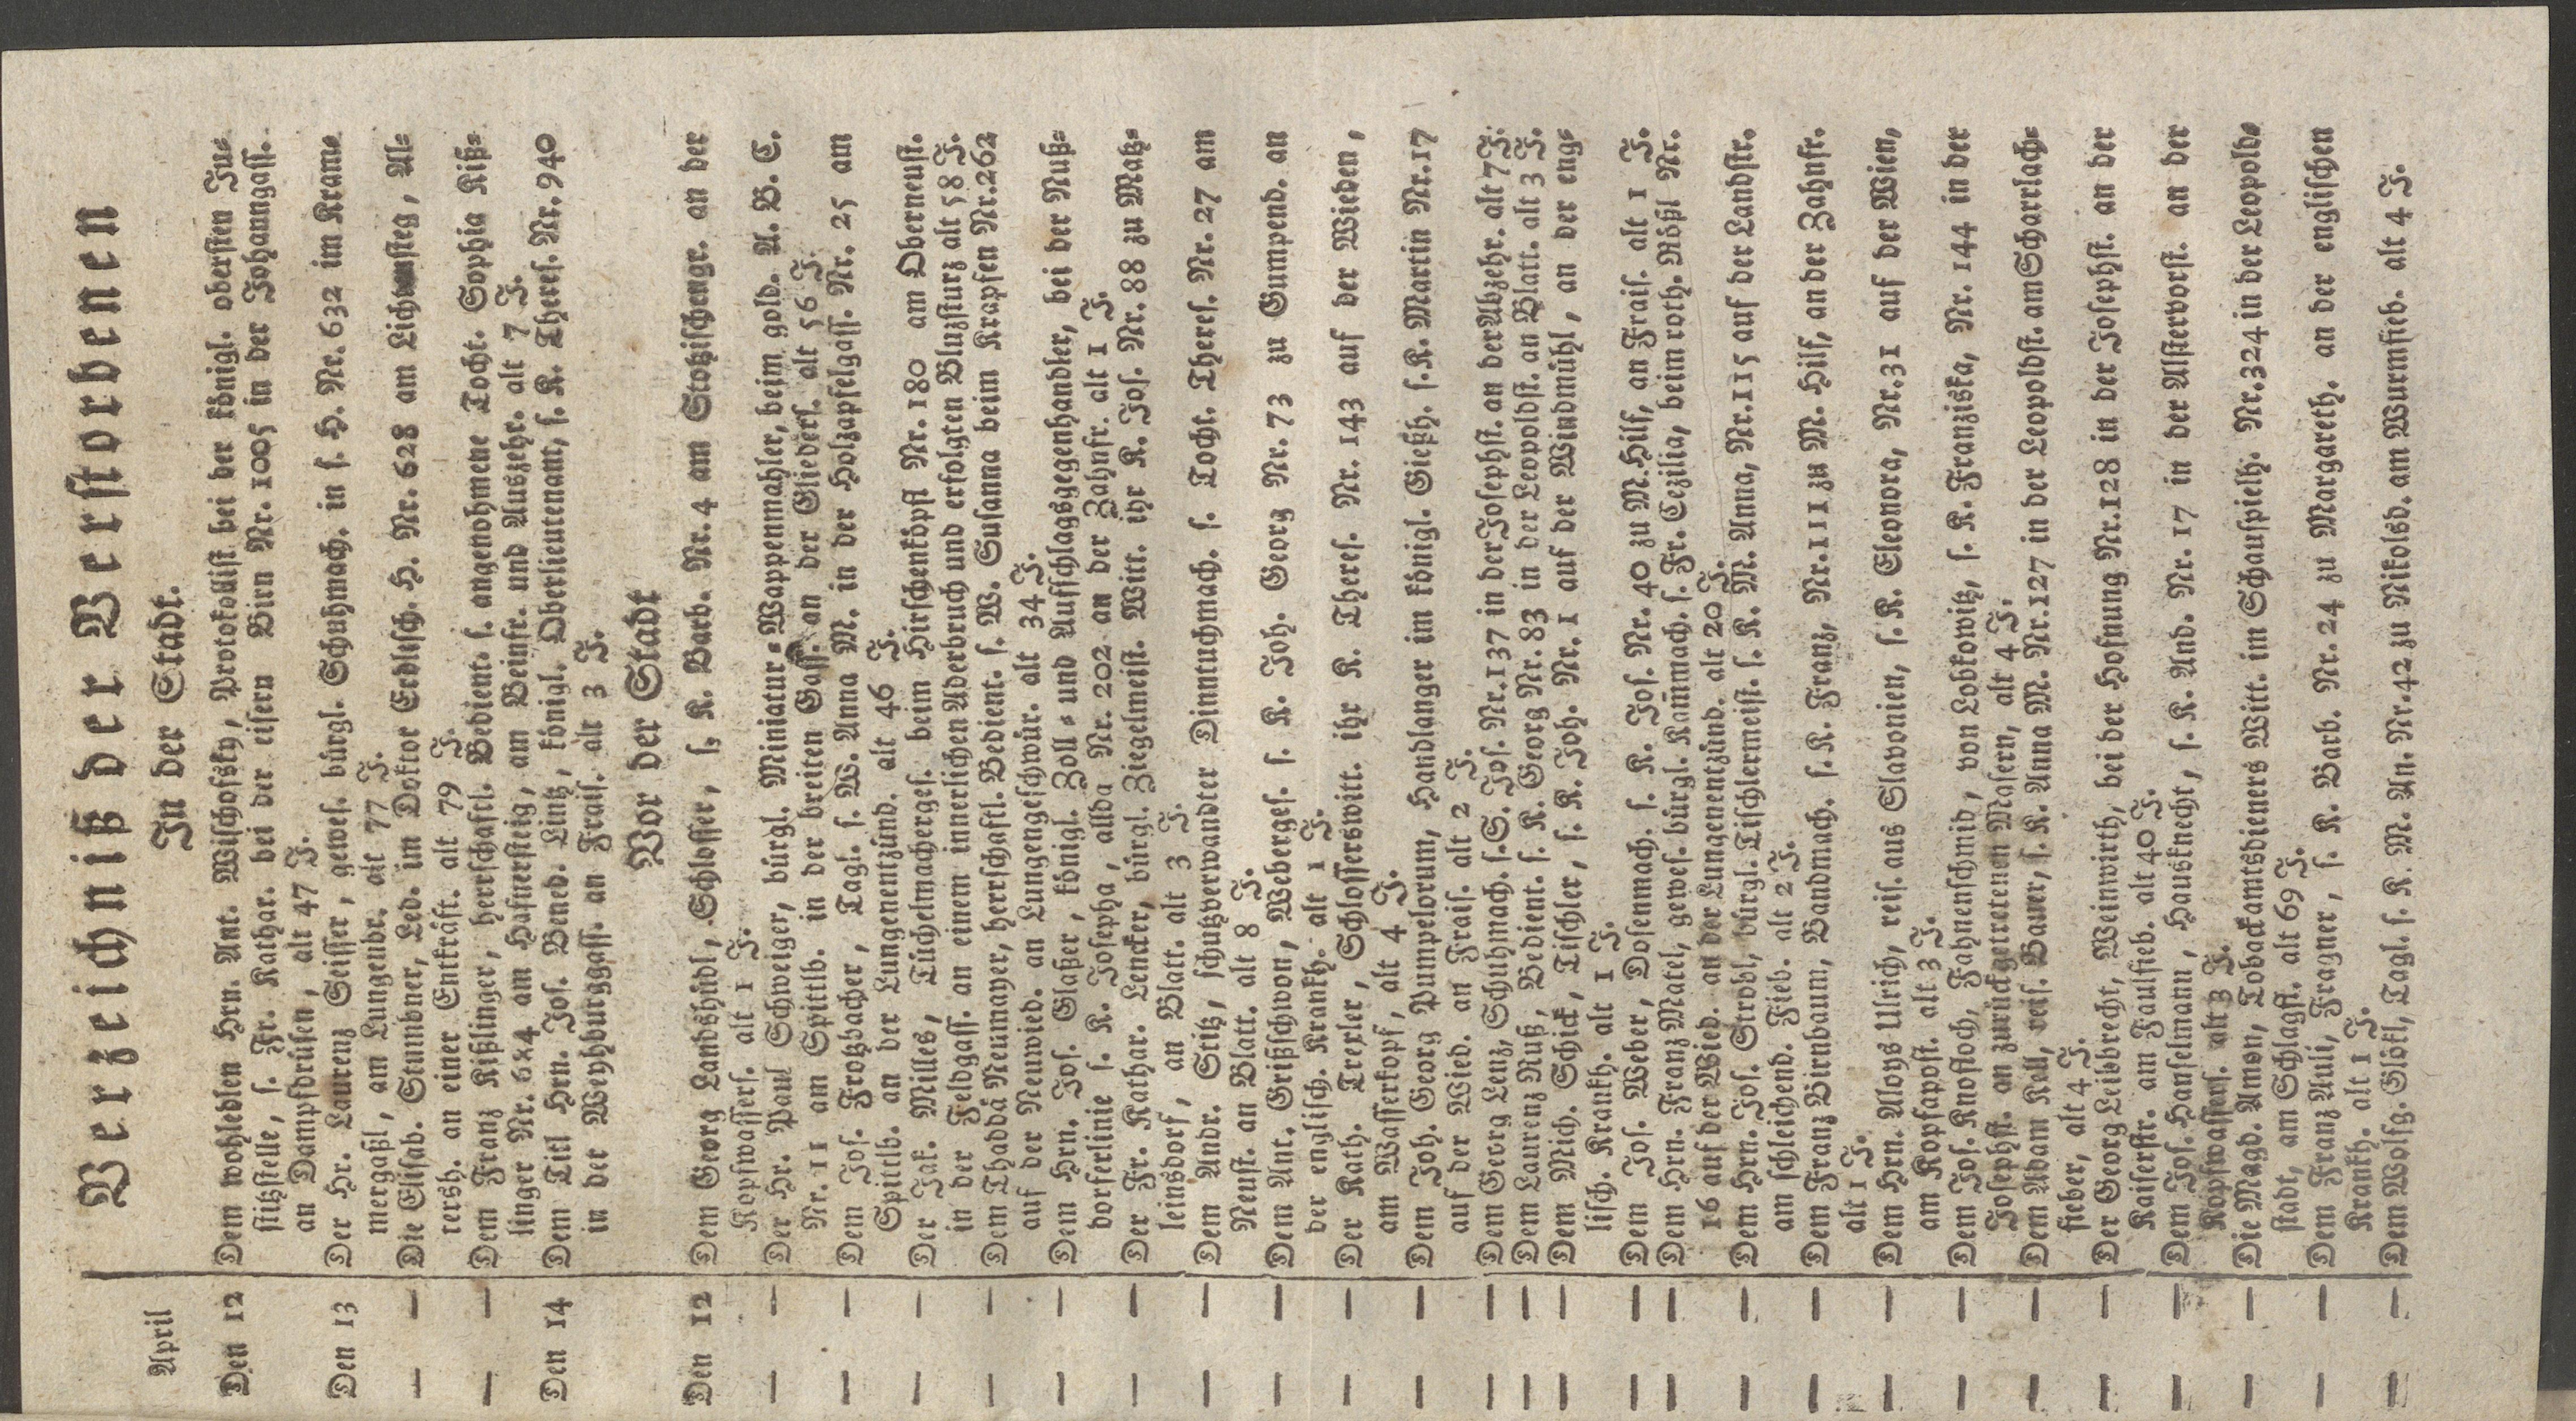 Verzeichniß der Verstorbenen
April
In der Stadt.
Den 12 Dem wohledlen Hrn. Ant. Wischofsky, Protokollist bei der königl. obersten Ju⸗
stitzstelle, s. Fr. Kathar. bei der eisern Birn Nr. 1005 in der Johanngass.
an Dampfdrüsen, alt 47 J.
Den 13 Der Hr. Laurenz Seisser, gewes. bürgl. Schuhmach. in s. H. Nr. 632 im Kram⸗
mergaßl, am Lungenbr. alt 77 J.
— — Die Elisab. Stumbner, Led. im Doktor Erdlisch. H. Nr. 628 am Lichtensteg, Al⸗
tersh. an einer Entkräft. alt 79 J.
— — Dem Franz Kißlinger, herrschaftl. Bedient. s. angenohmene Tocht. Sophia Kiß⸗
linger Nr. 674 am Hafnersteig, am Beinfr. und Auszehr. alt 7 J.
Den 14 Dem Titl Hrn. Jos. Bened. Lintz, königl. Oberlieutenant, s. K. Theres. Nr. 940
in der Weyhburggass. an Frais. alt 3 J.
Vor der Stadt
Den 12 Dem Georg Landshüdl, Schlosser, s. K. Barb. Nr. 4 am Stotzischengr. an der
Kopfwassers. alt 1 J.
— — Der Hr. Paul Schweiger, bürgl. Miniatur⸗Wappenmahler, beim gold. A. B. C.
Nr. 11 am Spittlb. in der breiten Gass. an der Glieders. alt 56 J.
— — Dem Jos. Frotzbacher, Tagl. s. W. Anna M. in der Holzapfelgass. Nr. 25 am
Spittlb. an der Lungenentzünd. alt 46 J.
— — Der Jak. Milles, Tüchelmacherges. beim Hirschenköpfl Nr. 180 am Oberneust.
in der Feldgass. an einem innerlichen Aderbruch und erfolgten Blutzsturz alt 58 J.
— — Dem Thaddä Neumayer, herrschaftl. Bedient. s. W. Susanna beim Krapfen Nr. 262
auf der Neuwied. an Lungengeschwür. alt 34 J.
— — Dem Hrn. Jos. Glaßer, königl. Zoll⸗ und Aufschlagsgegenhandler, bei der Nuß⸗
dorferlinie s. K. Josepha, allda Nr. 202 an der Zahnfr. alt 1 J.
— — Der Fr. Kathar. Lencker, bürgl. Ziegelmeist. Witt. ihr K. Jos. Nr. 88 zu Matz⸗
leinsdorf, an Blatt. alt 3 J.
— — Dem Andr. Sritz, schutzverwandter Dinntuchmach. s. Tocht. Theres. Nr. 27 am
Neust. an Blatt. alt 8 J.
— — Dem Ant. Grißschwon, Weberges. s. K. Joh. Georg Nr. 73 zu Gumpend. an
der englisch. Krankh. alt 1 J.
— — Der Kath. Trexler, Schlosserswitt. ihr K. Theres. Nr. 143 auf der Wieden,
am Wasserkopf, alt 4 J.
— — Dem Joh. Georg Pumpelorum, Handlanger im königl. Gießh. s. K. Martin Nr. 17
auf der Wied. an Frais. alt 2 J.
— — Dem Georg Lenz, Schuhmach. s. S. Jos. Nr. 137 in der Josephst. an der Abzehr. alt 7 J.
— — Dem Laurenz Nuß, Bedient. s. K. Georg Nr. 83 in der Leopoldst. an Blatt. alt 3 J.
— — Dem Mich. Schick, Tischler, s. K. Joh. Nr. 1 auf der Windmühl, an der eng⸗
lisch. Krankh. alt 1 J.
— — Dem Jos. Weber, Dosenmach. s. K. Jos. Nr. 40 zu M. Hilf, an Frais. alt 1 J.
— — Dem Hrn. Franz Matel, gewes. bürgl. Kam̄mach. s. Fr. Cezilia, beim roth. Rößl Nr.
16 auf der Wied. an der Lungenentzünd. alt 20 J.
— — Dem Hrn. Jos. Strobl, bürgl. Tischlermeist. s. K. M. Anna, Nr. 115 auf der Landstr.
am schleichend. Fieb. alt 2 J.
— — Dem Franz Birnbaum, Bandmach. s. K. Franz, Nr. 111 zu M. Hilf, an der Zahnfr.
alt 1 J.
— — Dem Hrn. Aloys Ulrich, reis. aus Slavonien, s. K. Eleonora, Nr. 31 auf der Wien,
am Kopfapost. alt 3 J.
— — Dem Jos. Knofloch, Fahnenschmid, von Lobkowitz, s. K. Franziska, Nr. 144 in der
Josephst. an zurückgetretenen Masern, alt 4 J.
— — Dem Adam Kall, reis. Bauer, s. K. Anna M. Nr. 127 in der Leopoldst. am Scharrlach⸗
fieber, alt 4 J.
— — Der Georg Leibrecht, Weinwirth, bei der Hofnung Nr. 128 in der Josephst. an der
Kaiserstr. am Faulfieb. alt 40 J.
— — Dem Jos. Hanselmann, Hausknecht, s. K. And. Nr. 17 in der Alstervorst. an der
Kopfwassers. alt 3 J.
— — Die Magd. Amon, Tobackamtsdieners Witt. im Schauspielh. Nr. 324 in der Leopold⸗
stadt, am Schlagfl. alt 69 J.
— — Dem Franz Auli, Fragner, s. K. Barb. Nr. 24 zu Margareth. an der englischen
Krankh. alt 1 J.
— — Dem Wolfg. Glötl, Tagl. s. K. M. An. Nr. 42 zu Nikolsd. am Wurmfieb. alt 4 J.